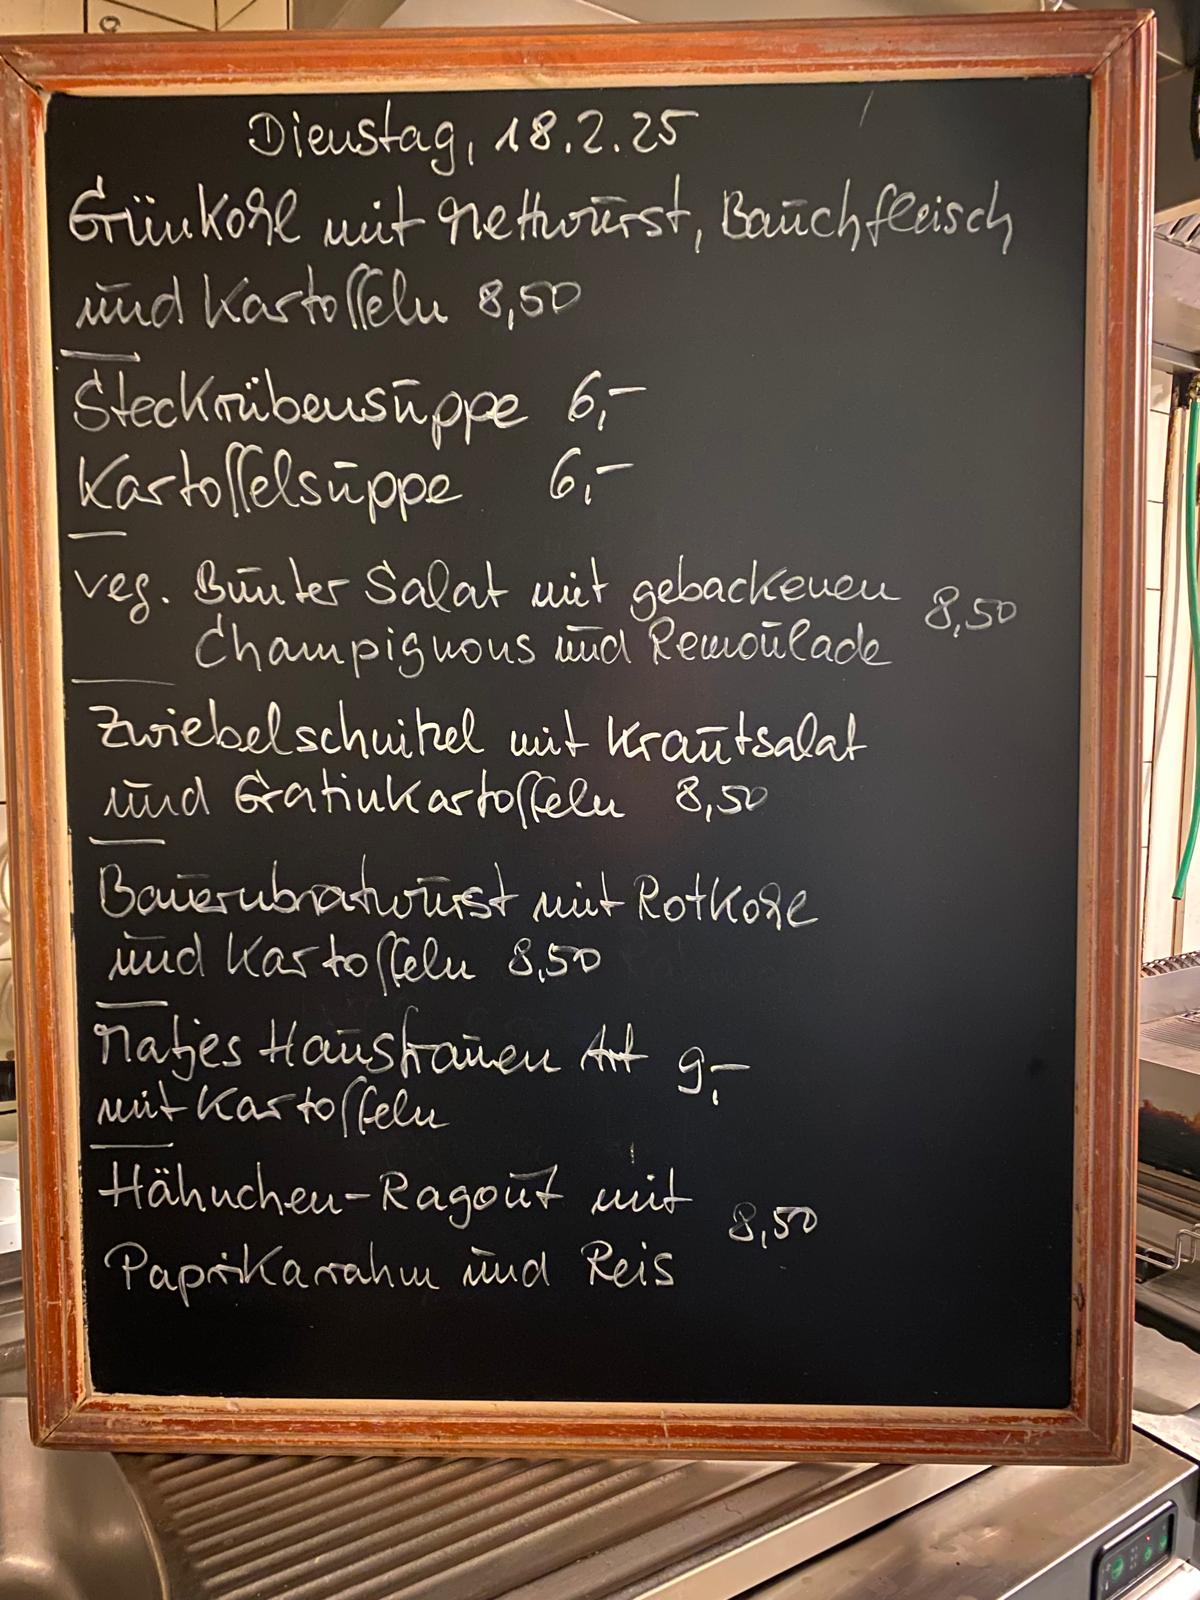 Dienstag, 18.2.25
Grünkohl mit Mettwurst, Bauchfleisch
und Kartoffeln 8,50
Steckrübensuppe 6,-
Kartoffelsuppe 6,-
veg. Bunter Salat mit gebackenen 8,50
Champignons und Remoulade
Zwiebelschnitzel mit Krautsalat
und Gratinkartoffeln 8,50
Bauernbratwurst mit Rotkohl
und Kartoffeln 8,50
Matjes Hausfrauen Art 9,-
mit Kartoffeln
Hähnchen-Ragout mit 8,50
Paprikarahm und Reis